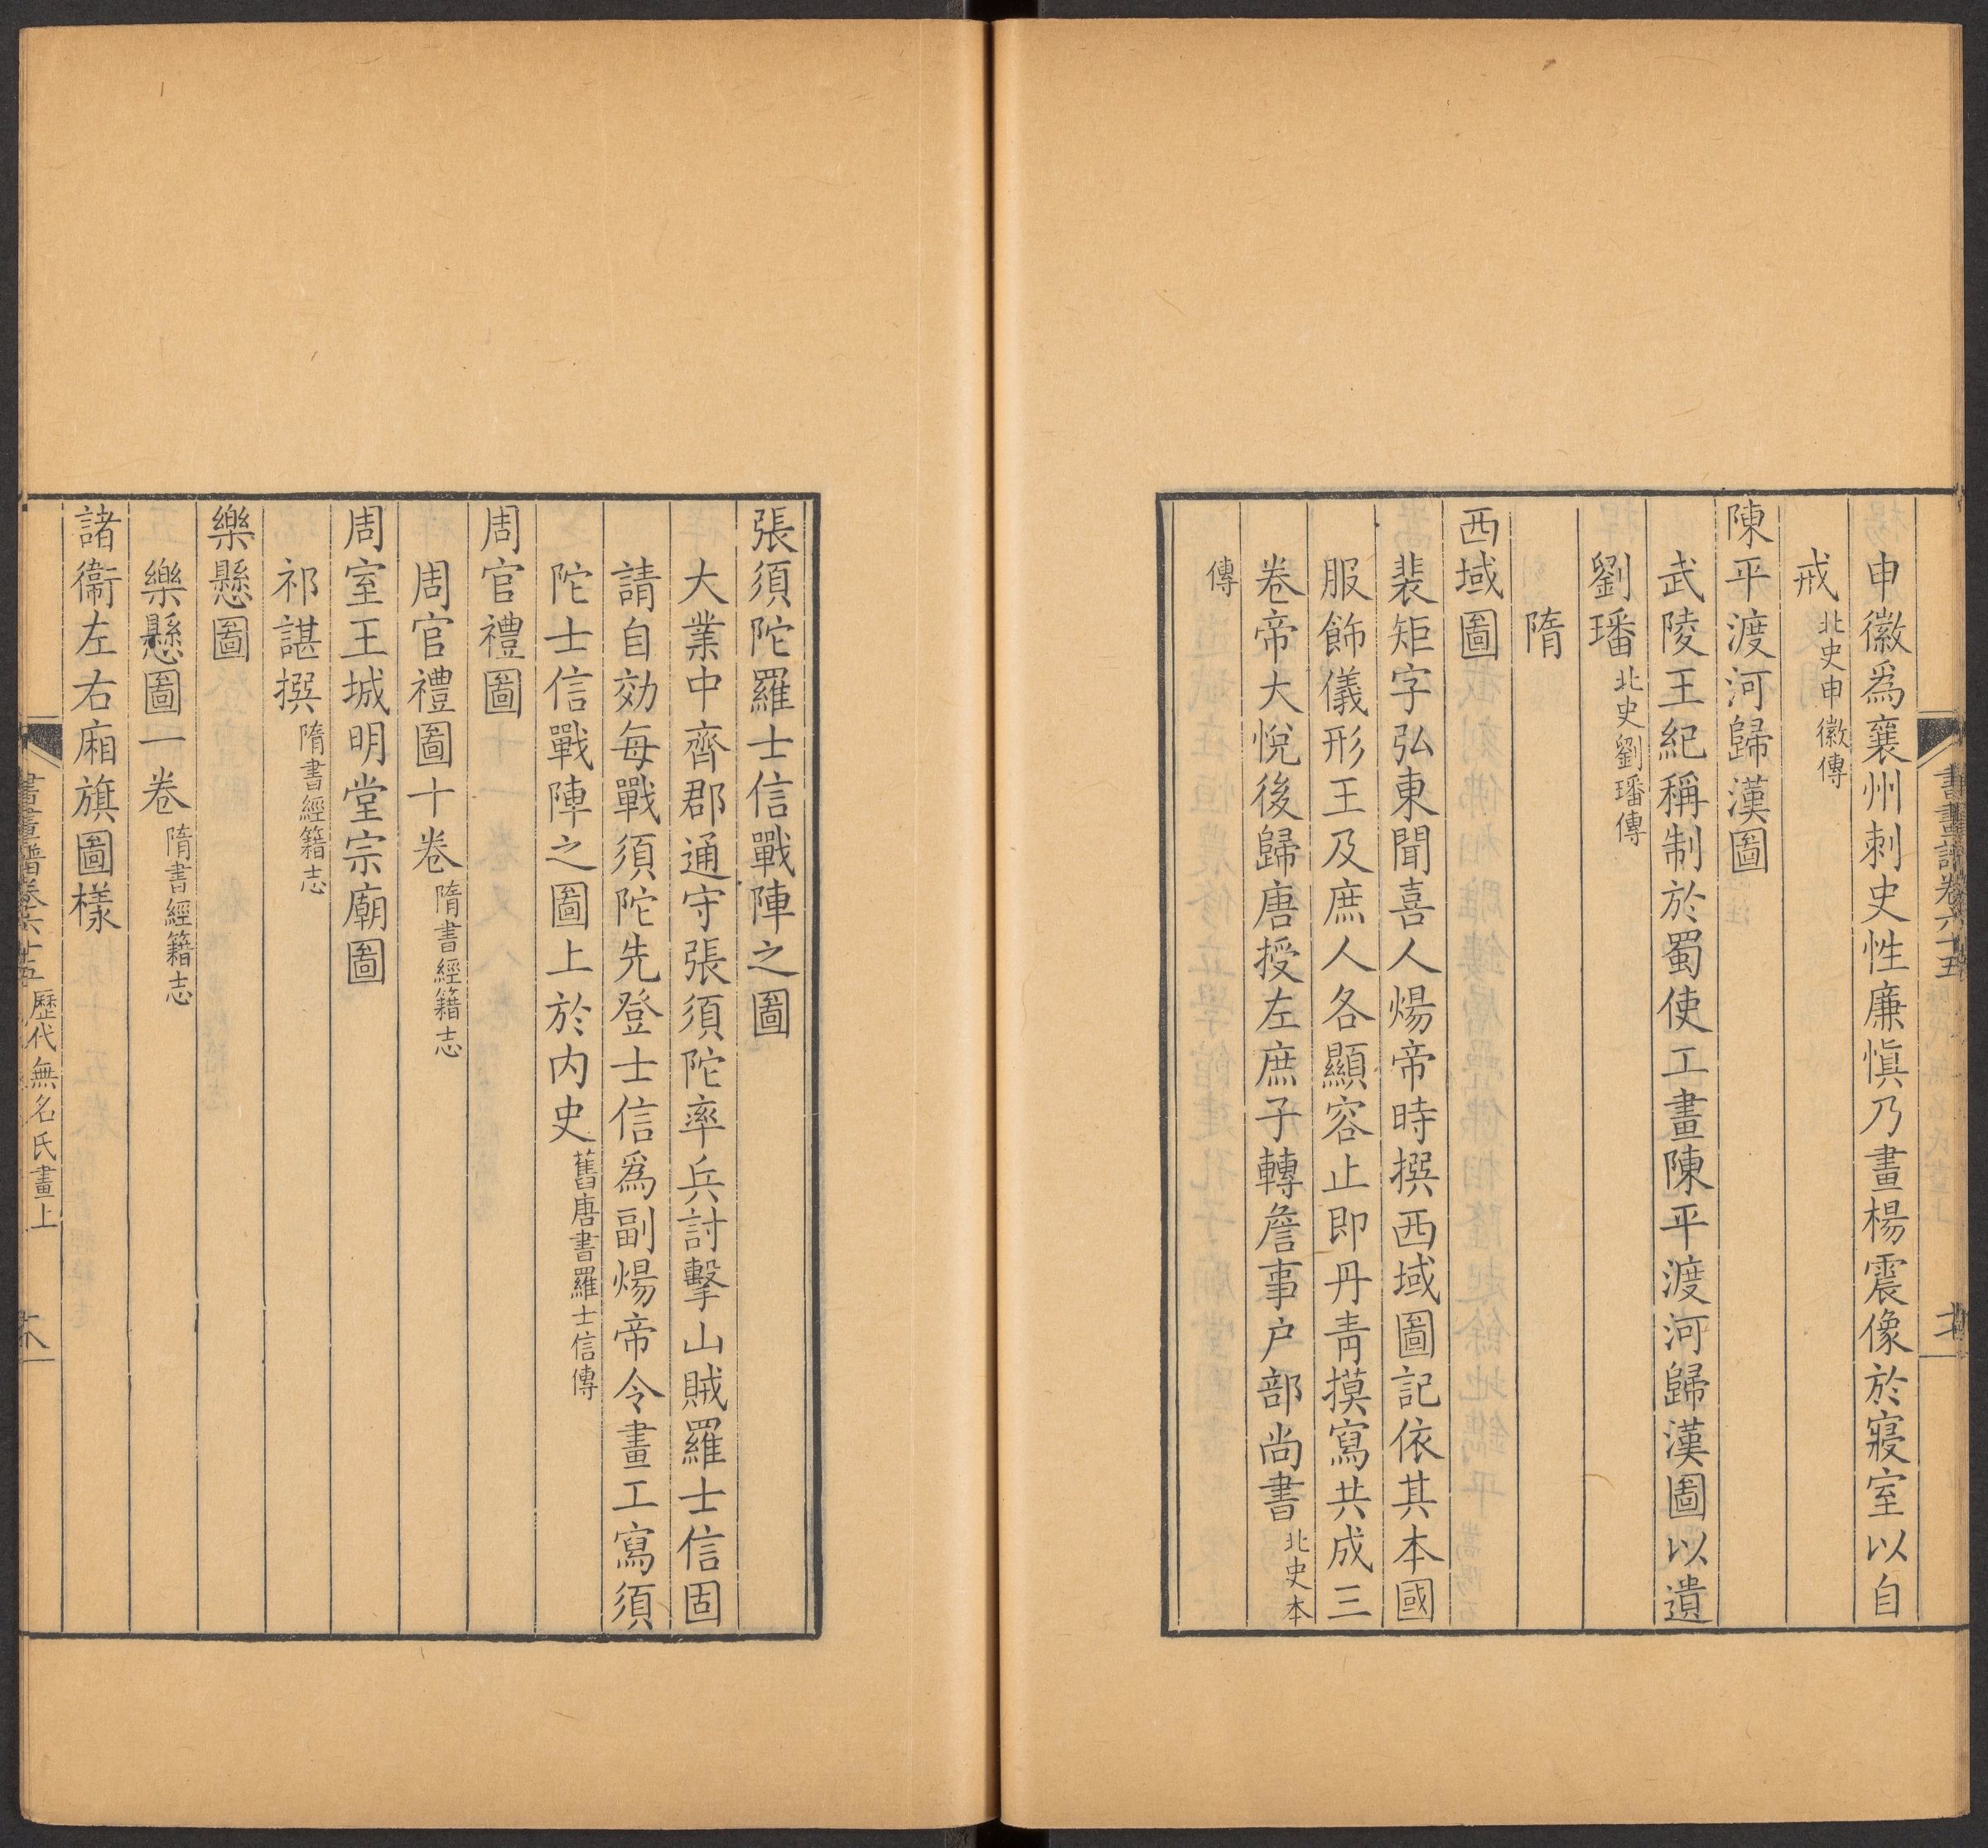 申徽爲襄州刺史性廉愼乃畫楊震像於寢室以自
戒北史申徽傳
陳平渡河歸漢圖
武陵王紀稱制於蜀使工畫陳平渡河歸漢圖以遺
劉璠北史劉璠傳
隋
西域圖
裴矩字弘東聞喜人煬帝時撰西域圖記依其本國
服飾儀形王及庶人各顯容止即丹青摸寫共成三
卷帝大悅後歸唐授左庶子轉詹事户部尚書北史本
傳
張須陀羅士信戰陣之圖
大業中齊郡通守張須陀率兵討擊山賊羅士信固
請自効每戰須陀先登士信爲副煬帝令畫工寫須
陀士信戰陣之圖上於内史舊唐書羅士信傳
周官禮圖
周官禮圖十卷隋書經籍志
周室王城明堂宗廟圖
祁諶撰隋書經籍志
樂懸圖
樂懸圖一卷隋書經籍志
諸衞左右廂旗圖樣
書畫譜卷六十五 歷代無名氏畫上